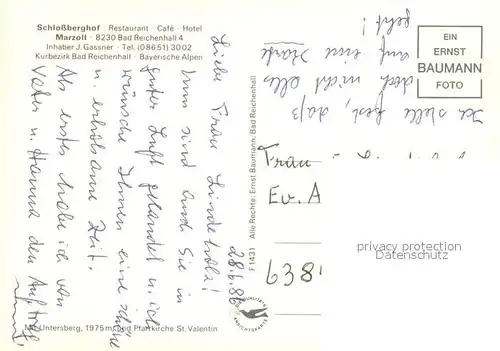 Schloßberghof · Restaurant · Café · Hotel
Marzoll · 8230 Bad Reichenhall 4
Inhaber J. Gassner · Tel. (08651) 3002
Kurbezirk Bad Reichenhall · Bayerische Alpen
EIN
ERNST
BAUMANN
FOTO
28.6.86
Liebe Frau
Nun sind auch Sie in
guter Luft gelandet u. ich
wünsche Ihnen eine schöne
u. erholsame Zeit.
Als erstes habe ich von
Vater u. Hanna den Auftrag
Ich stelle fest, daß
doch nicht alles
auf eine Karte
geht!
Frau
Ev. A
638
F1431 Alle Rechte: Ernst Baumann, Bad Reichenhall
privacy protection
Datenschutz
QUALITÄTS
ANSICHTSKARTE
Mit Untersberg, 1975 m, und Pfarrkirche St. Valentin